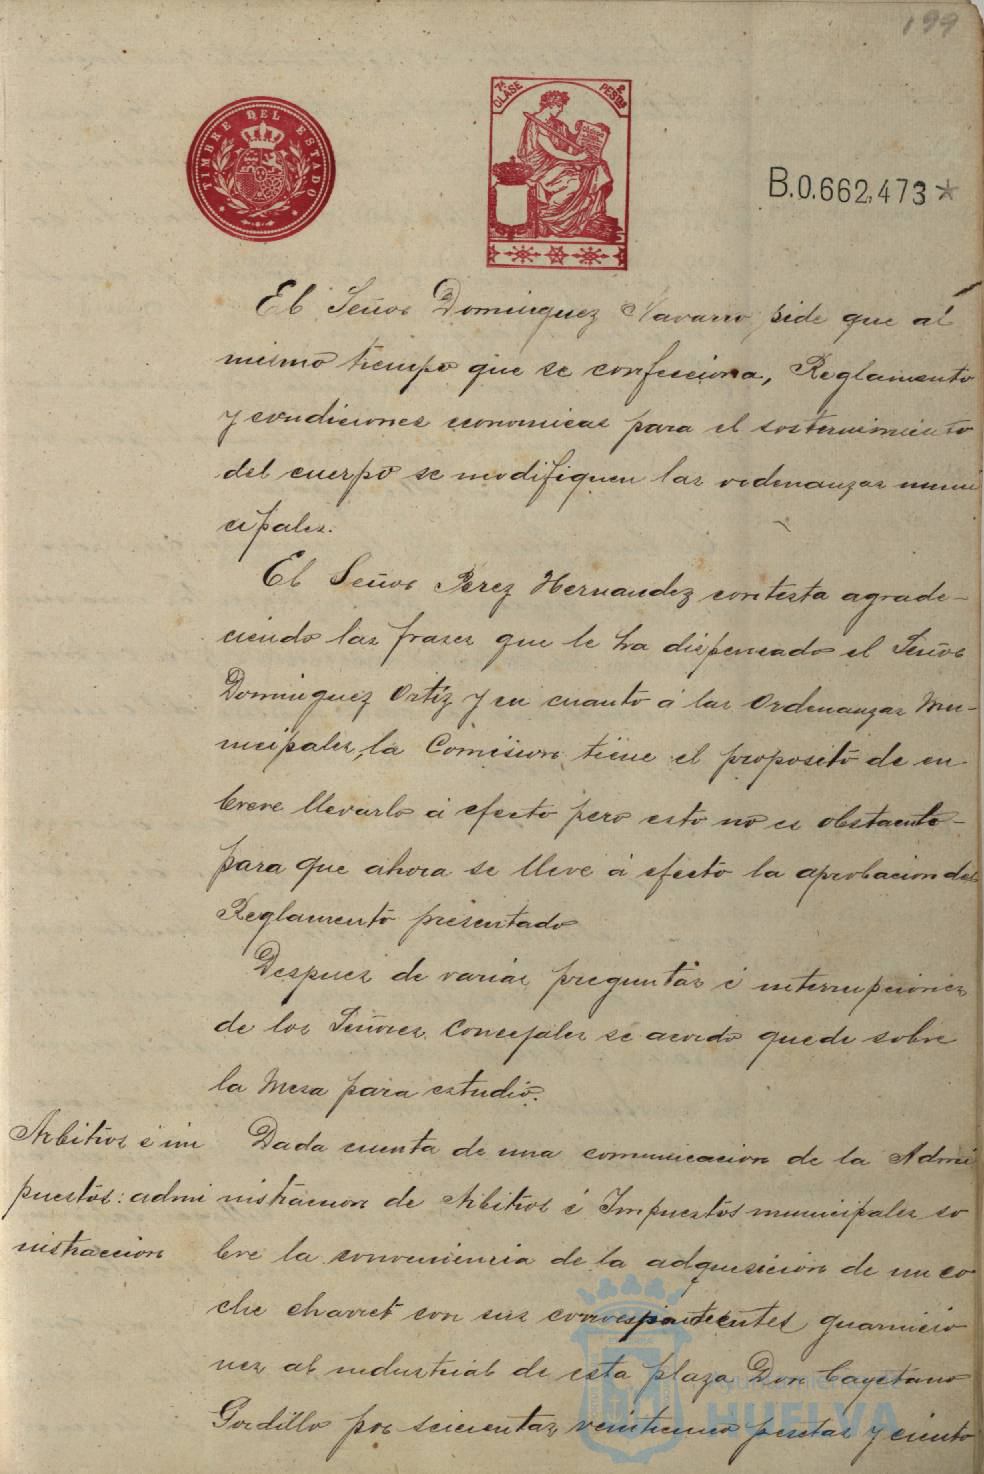 199
TIMBRE DEL ESTADO
7ª CLASE
2 PESTAS
B.0.662,473*
El Señor Dominguez Navarro pide que al
mismo tiempo que se confecciona, Reglamento
y condiciones economicas para el sostenimiento
del cuerpo se modifiquen las ordenanzas muni
cipales.
El Señor Perez Hernandez contesta agrade-
ciendo las frases que le ha dispensado el Señor
Dominguez Ortiz y en cuanto á las Ordenanzas Mu-
nicipales, la Comision tiene el proposito de en
breve llevarlo á efecto pero esto no es obstaculo-
para que ahora se lleve á efecto la aprobacion del
Reglamento presentado
Despues de varias preguntas é interrupciones
de los Señores Concejales se acordo quede sobre
la Mesa para estudio.
Arbitrios é im
puestos: admi
nistraccion
Dada cuenta de una comunicacion de la Admi
nistracion de Arbitrios é Impuestos municipales so
bre la conveniencia de la adquisicion de un co
che charret con sus correspondientes guarnicio
nes al industrial de esta plaza Don Cayetano
Gordillo por seiscientas veinticinco pesetas y ciento
Ayuntamiento
HUELVA